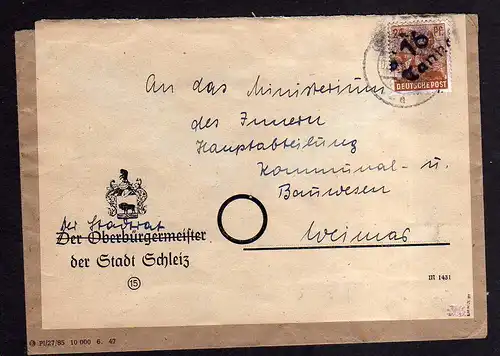 24 PF.
16
Tanna
DEUTSCHE POST
An das Ministerium
des Innern
Hauptabteilung
Kommunal- u.
Bauwesen
Weimar
Der Stadtrat
Der Oberbürgermeister
der Stadt Schleiz
15
III 1431
PI/27/85 10 000 6. 47